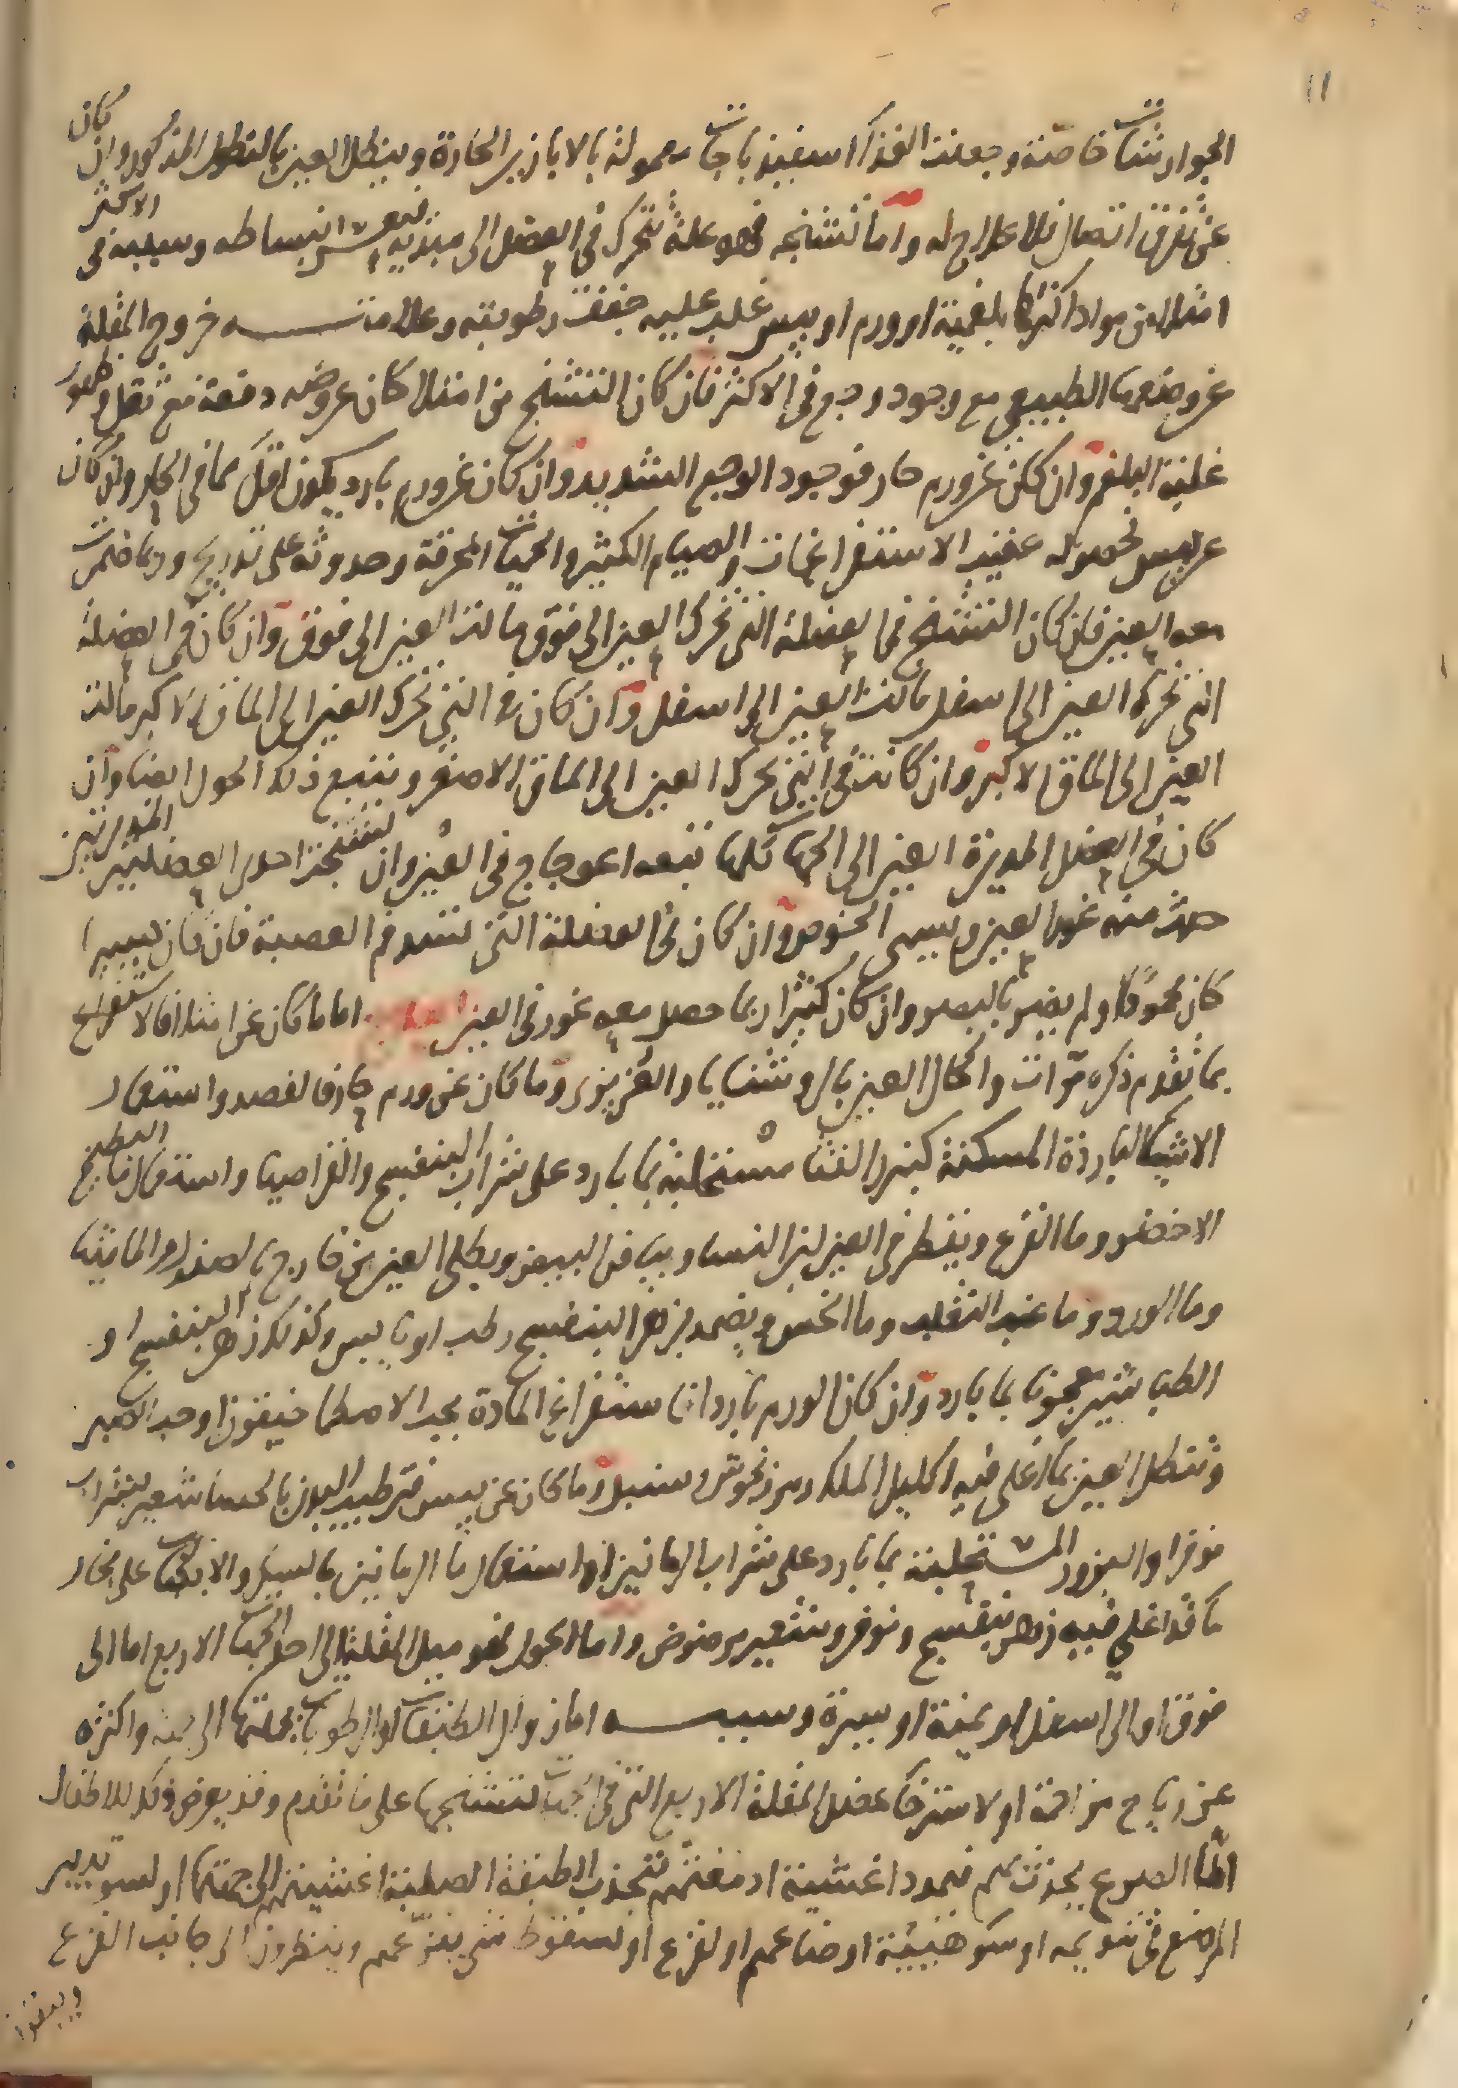 ١١
الجوارشنات خاصة وجعلت الغذا اسفيذباجات معمولة بالابازير الحارة وينطل العين بالنطول المذكور وان كان
عن تفرق اتصال فلا علاج له واما تشنجه فهو علة تتحرك في العضل الى مبدئها فيعسر انبساطه وسببه في الاكثر
امتلا من مواد اكثرها بلغمية او ورم او يبس غلب عليه جففت رطوبته وعلامته خروج المقلة
عن وضعها الطبيعي مع وجود وجع في الاكثر فان كان التشنج من امتلا كان عروضه دفعة مع ثقل وظهور
غلبة البلغم وان كان عن ورم حار فوجود الوجع الشديد وان كان عن ورم بارد يكون اقل مما في الحار وان كان
عن يبس فحصوله عقيب الاستفراغات والصيام الكثير والحميات المحرقة وحدوثه على تدريج وربما ضمرت
معه العين فان كان التشنج في العضلة التي تحرك العين الى فوق مالت العين الى فوق وان كان في العضلة
التي تحرك العين الى اسفل مالت العين الى اسفل وان كان في التي تحرك العين الى الماق الاكبر مالت
العين الى الماق الاكبر وان كانت في التي تحرك العين الى الماق الاصغر ويتبع ذلك الحول ايضا وان
كان في العضل المديرة العين الى الجهات كلها تبعه اعوجاج في العين وان تشنجت احدى العضلتين المديرتين
حدث منه غور العين ويسمى الخوص وان كان في العضلة التي تشد فم العصبة فان كان يسيرا
كان محمودا ولم يضر بالبصر وان كان كثيرا ربما حصل معه غور في العين اما ما كان عن امتلا فالاستفراغ
بما تقدم ذكره مرات واكحال العين بالروشنايا والعزيزى وما كان عن ورم حار فالفصد واستعمال
الاشيا الباردة المسكنة كبزر القثا مستحلبة بما بارد على شراب البنفسج والقراصيا واستعمال ما البطيخ
الاخضر وما القرع ويقطر في العين لبن النسا وبياض البيض ويطلى العين من خارج بالصندل والماميثا
وما الورد وما عنب الثعلب وما الخس ويضمد بزهر البنفسج رطب او يابس وكذلك زهر البنفسج او
الطباشير معجونا بما بارد وان كان الورم باردا فاستفراغ المادة بحب الاصطماخيقون او حب الصبر
وتنطل العين بما اغلى فيه اكليل الملك ومرزنجوش وسنبل وما كان عن يبس فترطيب البدن بالحسا شعير بشراب
نوفر او البزور المستحلبة بما بارد على شراب الرمانين او استعمال ما الرمانين بالسكر والانكباب على بخار
ما قد اغلي فيه زهر بنفسج ونوفر وشعير مرضوض واما الحول فهو ميل المقلة الى احد الجهات الاربع اما الى
فوق او الى اسفل او يمنة او يسرة وسببه اما زوال الطبقات او الرطوبات بجملتها الى جهة واكثره
عن رياح مزاحمة او لاسترخا عضل المقلة الاربع التي في الجهات لتشنجها على ما تقدم وقد يعرض ذلك للاطفال
اما لصرع يحدث بهم فيمدد اغشية ادمغتهم فتجذب الطبقة الصلبة اغشيتهن الى جهتها او لسوء تدبير
المرضع في تنويمه او سوء هيئة ارضاعهم او لفزع او لسقوط شي يفزعهم وينظرون الى جانب الفزع
ويبقوا